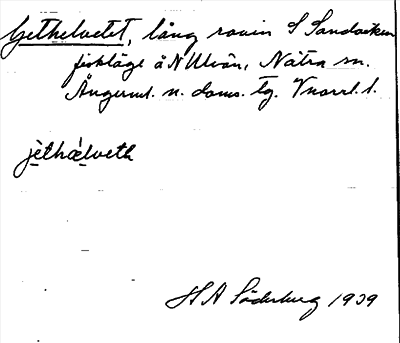 Gethelvetet, lång ravin S Sandviken
fiskläge å N Ulvön, Nätra sn.
Ångerml. n. doms. tg. Vnorrl. l.
jèthǽlveth
H A Söderberg 1939